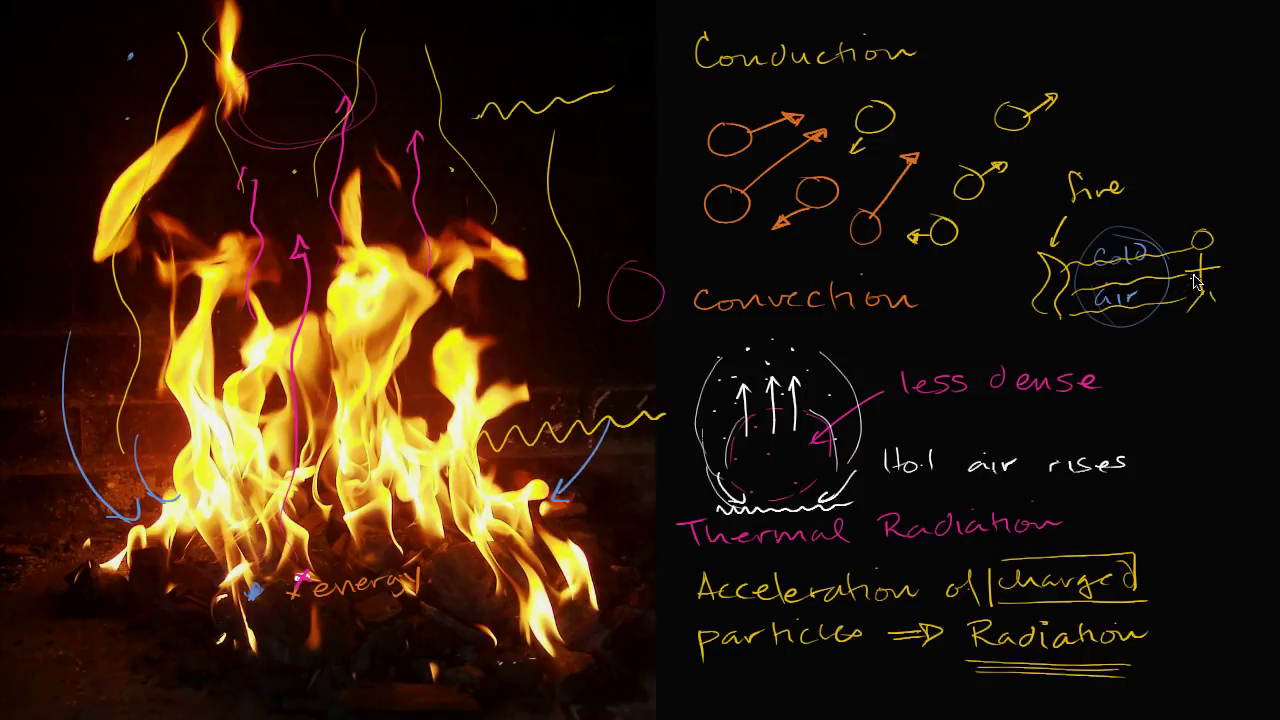 Conduction
fire
cold
air
Convection
less dense
Hot air rises
Thermal Radiation
Acceleration of charged
particles => Radiation
↑energy